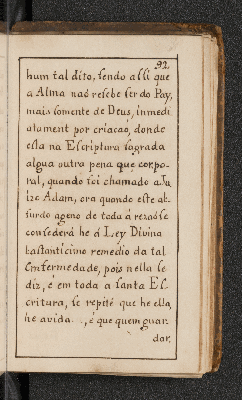 92
hum tal dito, sendo assi que
a Alma naõ resebe ser do Pay,
mais somente de Deus, inmedi
atament por criacaõ, donde
esta na Escriptura sagrada
algua outra pena que corpo-
ral, quando foi chamado a Ju
izo Adam, ora quando este ab-
surdo ageno de toda á rezaõ se
consederá he á Ley Divina
bastanticimo remedio da tal
Emfermedade, pois nella se
diz, é em toda a santa Es-
critura, se repité que he ella,
he avida é que quem guar
dar,